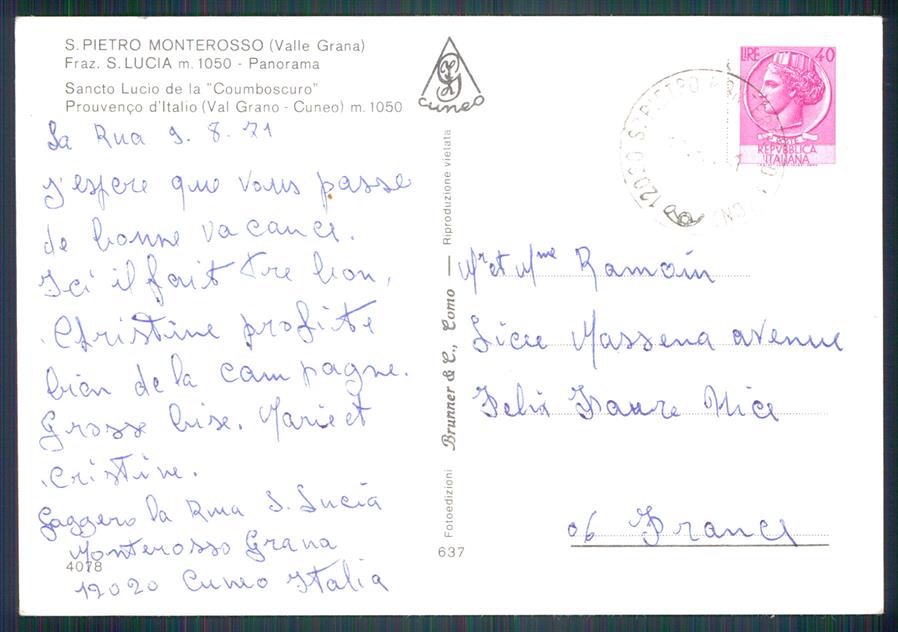 S. PIETRO MONTEROSSO (Valle Grana)
Fraz. S. LUCIA m. 1050 - Panorama
Sancto Lucio de la "Coumboscuro"
Prouvenço d'Italio (Val Grano - Cuneo) m. 1050
La Rua 9. 8. 71
j'espere que vous passe
de bonne vacance.
Ici il fait tre bon,
Christine profite
bien de la campagne.
Grosse bise. Marie et
Cristine.
Gaggero la Rua S. Lucia
Monterosso Grana
12020 Cuneo Italia
4078
cuneo
Riproduzione vietata
Brunner & C., Como
Fotoedizioni
637
LIRE 40
REPVBBLICA
ITALIANA
12020 S. PIETRO
Mr et Mme Ramoin
Licee Massena avenue
Felix Faure Nice
06 France